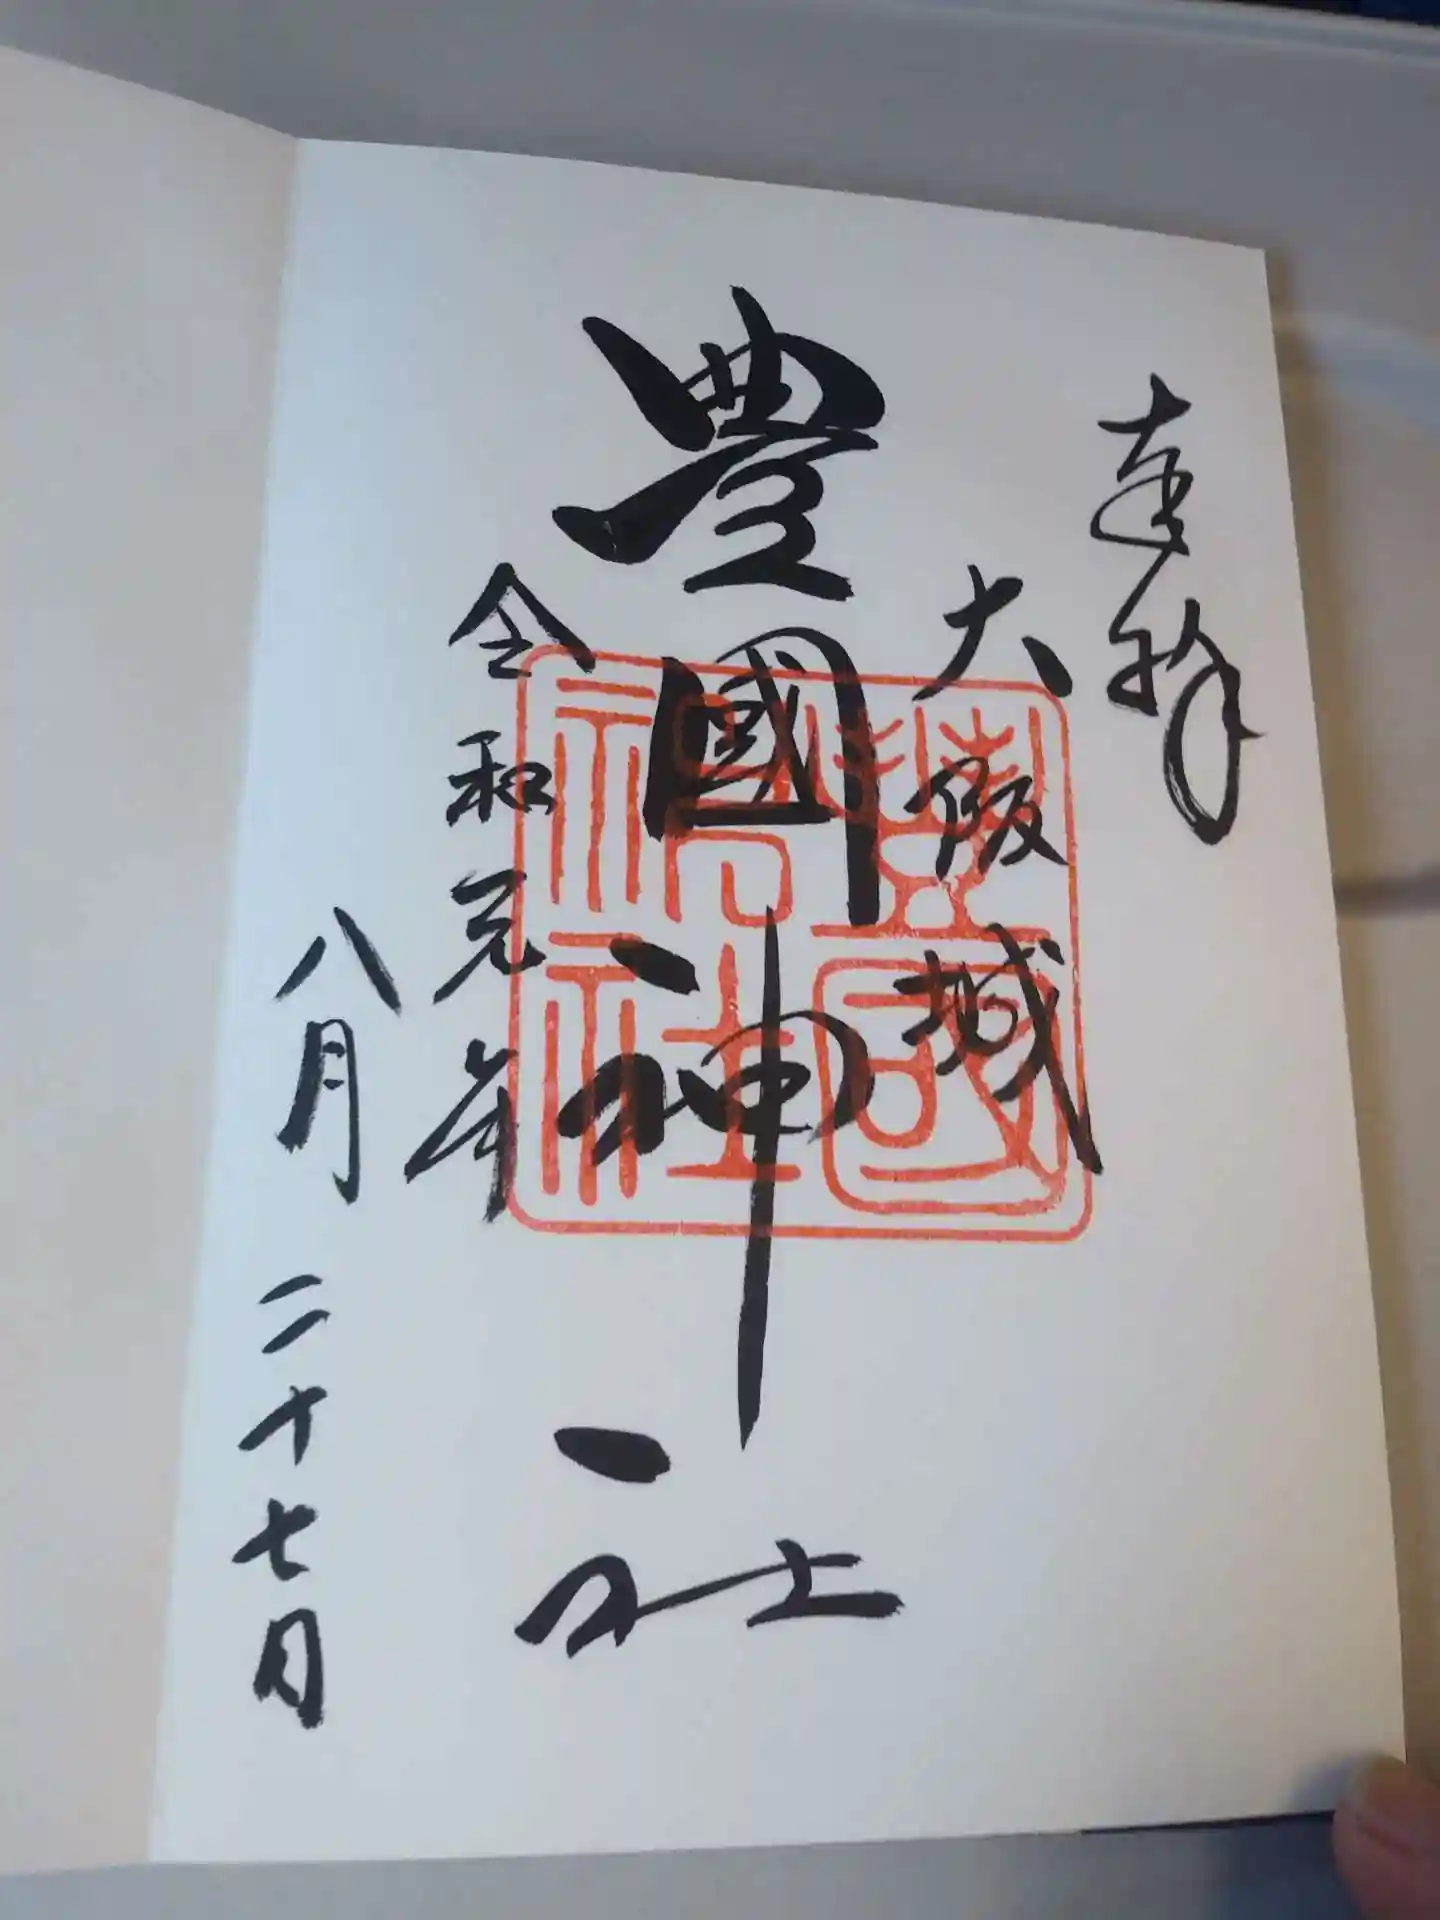 奉拝
大阪城
豊國神社
豊國神社
令和元年
八月二十七日